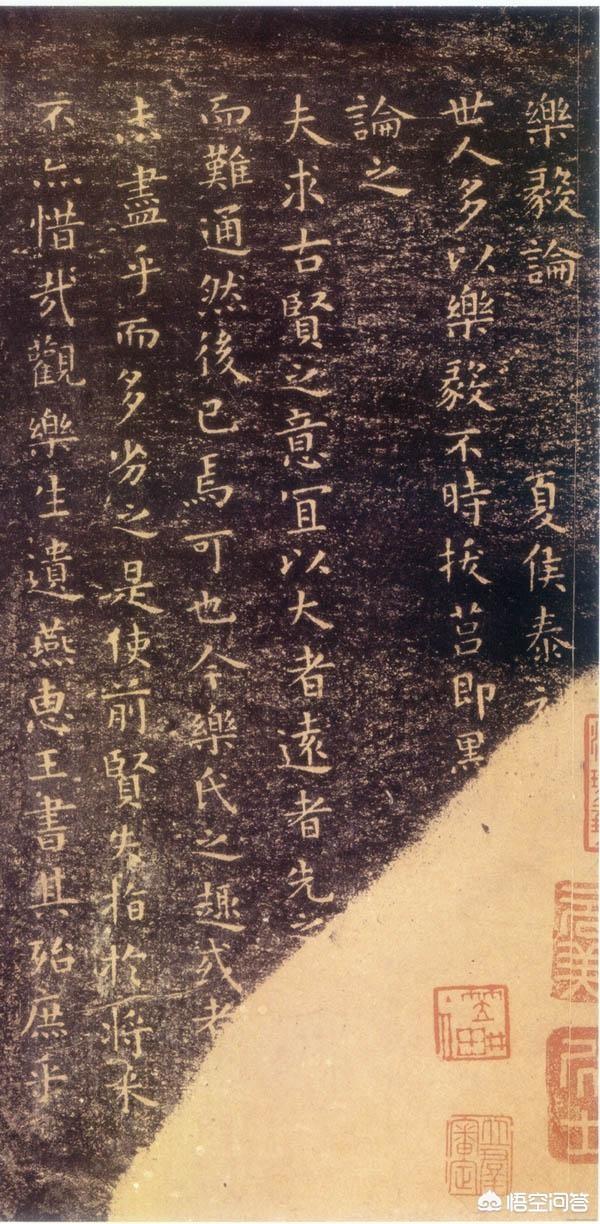 樂毅論　夏侯泰
世人多以樂毅不時拔莒即墨
論之
夫求古賢之意宜以大者遠者先之
而難通然後已焉可也今樂氏之趣或者
未盡乎而多劣之是使前賢失指於將來
不亦惜哉觀樂生遺燕惠王書其殆庶乎
悟空问答